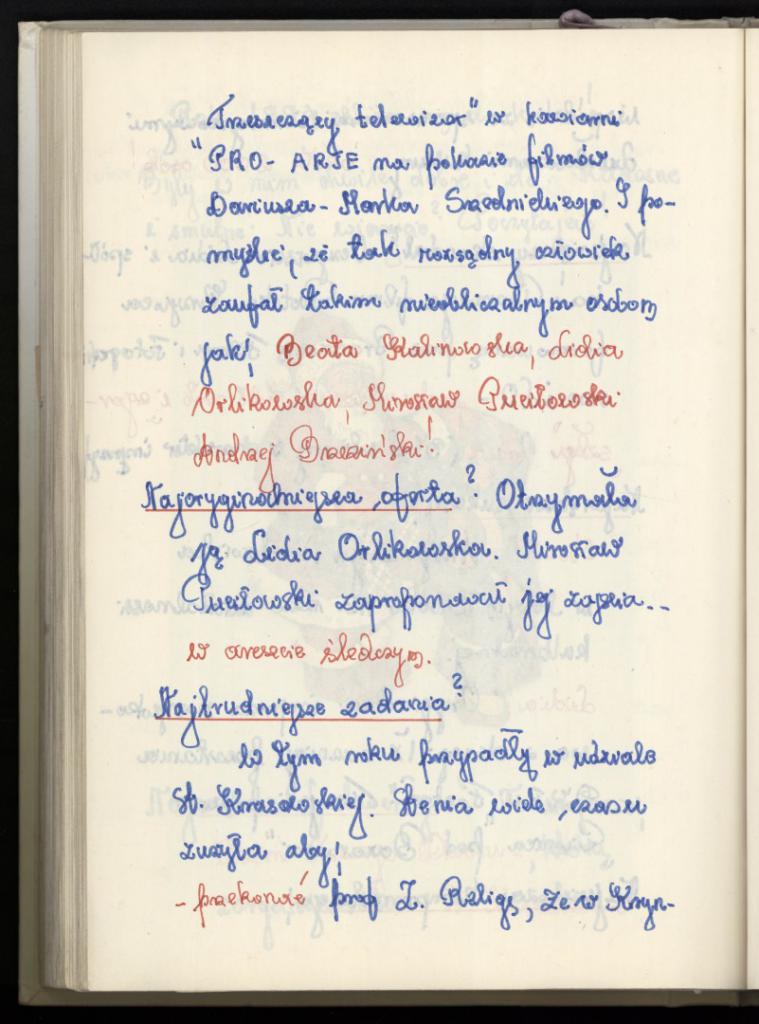 Trzeszczący telewizor" w kawiarni
"PRO-ARTE na pokazie filmów
Dariusza-Marka Srzednickiego. I po-
myśleć, że tak rozsądny człowiek
zaufał takim nieobliczalnym osobom
jak! Beata Kalinowska, Lidia
Orlikowska, Mirosław Puciłowski
Andrzej Brzeziński!
Najoryginalniejsza oferta? Otrzymała
ją Lidia Orlikowska. Mirosław
Puciłowski zaproponował jej zajęcia..
w areszcie śledczym.
Najtrudniejsze zadania?
W tym roku przypadły w udziale
A. Krasowskiej. Henia wiele czasu
zużyła aby!
- przekonać prof Z. Religę, że w Kryn-